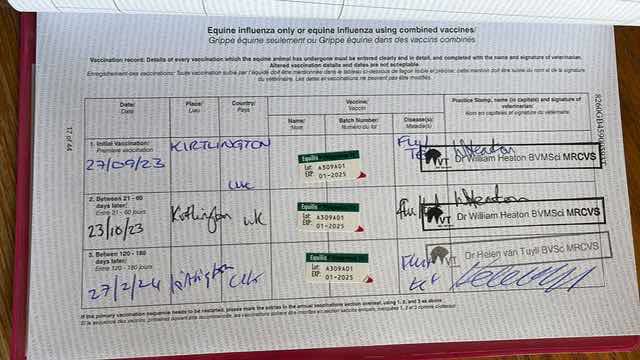 Equine influenza only or equine influenza using combined vaccines/
Grippe équine seulement ou Grippe équine dans des vaccins combinés
Vaccination record: Details of every vaccination which the equine animal has undergone must be entered clearly and in detail, and completed with the name and signature of veterinarian.
Altered vaccination details and dates are not acceptable.
Enregistrement des vaccinations: Toute vaccination subie par l'équidé doit être mentionnée dans le tableau ci-dessous de façon lisible et précise; cette mention doit être suivie du nom et de la signature
du vétérinaire. Les dates et vaccinations ne peuvent pas être modifiées.
17 of 44
Date/
Date
Place/
Lieu
Country/
Pays
Vaccine/
Vaccin
Name/
Nom
Batch Number/
Numéro du lot
Disease(s)/
Maladie(s)
Practice Stamp, name (in capitals) and signature of
veterinarian/
Nom en capitales et signature du vétérinaire
1. Initial Vaccination/
Première vaccination
27/09/23
KIRTLINGTON
UK
Equilis
Lot: A309A01
EXP: 01-2025
Flu
VT
WHeaton
Dr William Heaton BVMSci MRCVS
2. Between 21 - 60
days later/
Entre 21 - 60 jours
23/10/23
Kirtlington
UK
Equilis
Lot: A309A01
EXP: 01-2025
Flu
VT
WHeaton
Dr William Heaton BVMSci MRCVS
3. Between 120 - 180
days later/
Entre 120 - 180 jours
27/2/24
Kirtlington
UK
Equilis
Lot: A309A01
EXP: 01-2025
VT
Dr Helen van Tuyll BVSc MRCVS
If the primary vaccination sequence needs to be restarted, please mark the entries in the annual vaccinations section overleaf, using 1, 2, and 3 as above